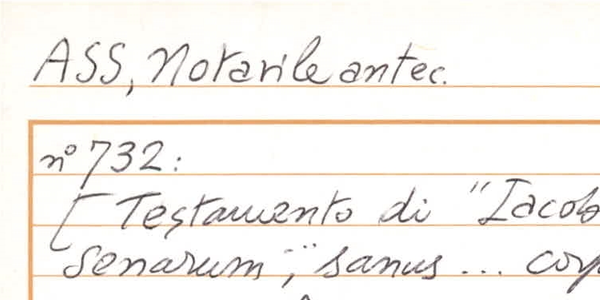 ASS, Notarile antec.
n° 732:
[Testamento di "Iacob
Senarum", sanus ... corp